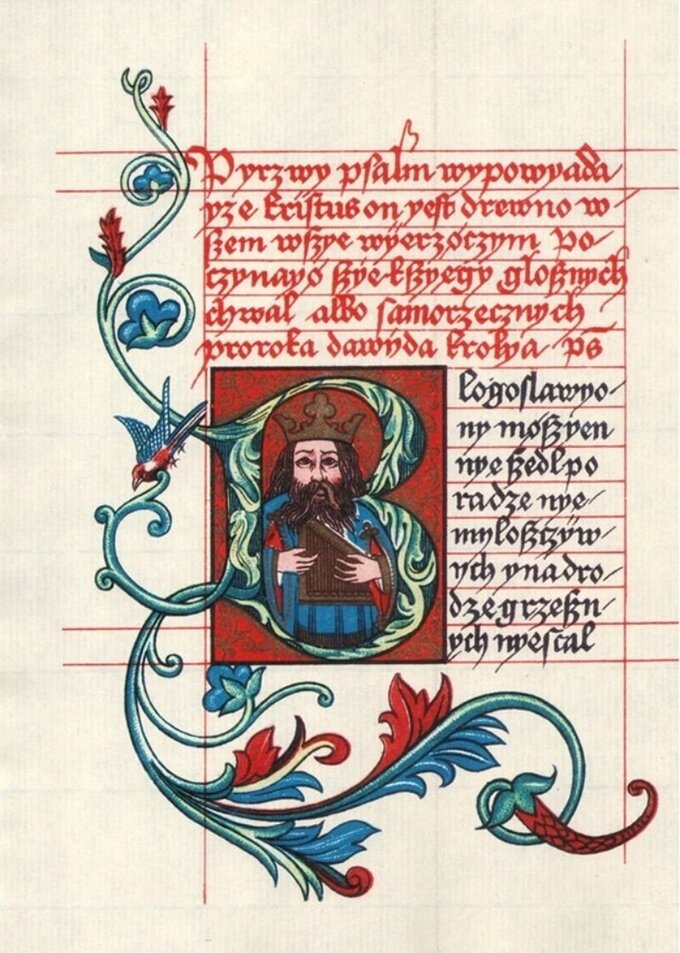 Pyrzwy psalm wypowyada
yze kristus on yest drewno w-
szem wszye wyerzöczym Po-
czynayö szye kszyegy gloßnych
chwal albo samorzecznych
proroka dawyda krolya ps
Blogoslawyo-
ny mößyen
nye szedl po
radze nye-
myloßczyw-
ych y na dro-
dze grzeßn-
ych nye stal